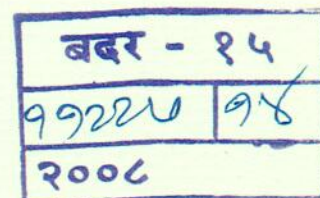 बदर - १५
११२२५ १४
२००८